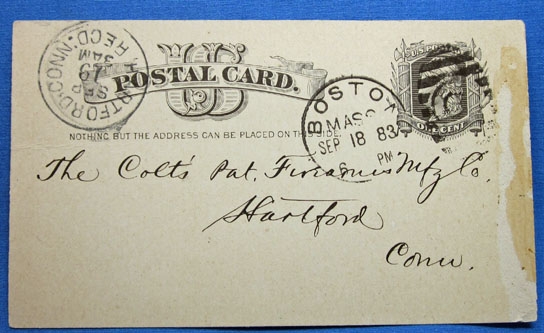 HARTFORD, CONN. REC'D.
SEP
19
3AM
US
POSTAL CARD.
U.S. POSTAGE
ONE CENT
NOTHING BUT THE ADDRESS CAN BE PLACED ON THIS SIDE.
BOSTON
MASS
SEP 18 83
6 PM
The Colt's Pat. Firearms Mfg Co.
Hartford
Conn.